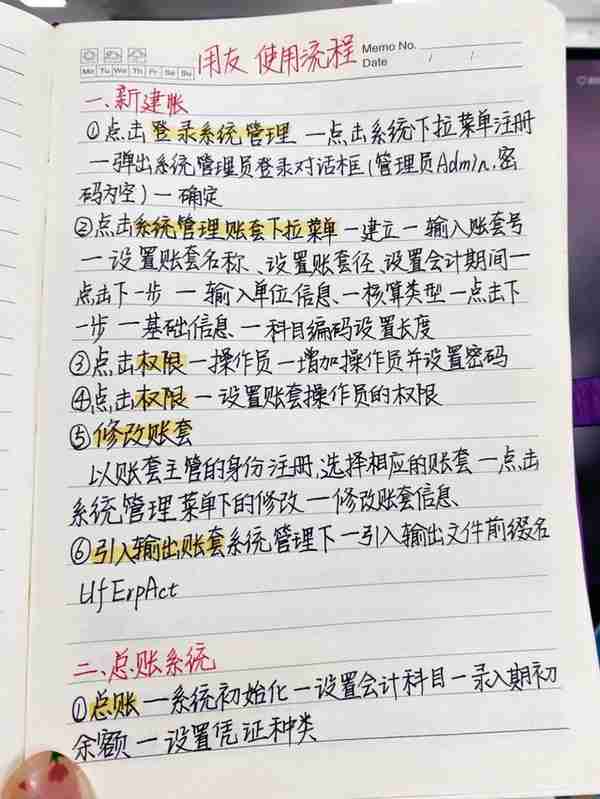 用友 使用流程
Memo No.
Date / /
Mo Tu We Th Fr Sa Su
一、新建账
①点击登录系统管理 一点击系统下拉菜单注册
一弹出系统管理员登录对话框(管理员Admin,密
码为空)一确定
②点击系统管理账套下拉菜单一建立一输入账套号
一设置账套名称、设置账套径、设置会计期间一
点击下一步 一输入单位信息、一核算类型一点击下
一步 一基础信息 一科目编码设置长度
③点击权限一操作员一增加操作员并设置密码
④点击权限一设置账套操作员的权限
⑤修改账套
以账套主管的身份注册,选择相应的账套一点击
系统管理菜单下的修改一修改账套信息
⑥引入输出账套系统管理下一引入输出文件前缀名
UfErpAct
二、总账系统
①总账一系统初始化一设置会计科目一录入期初
余额一设置凭证种类